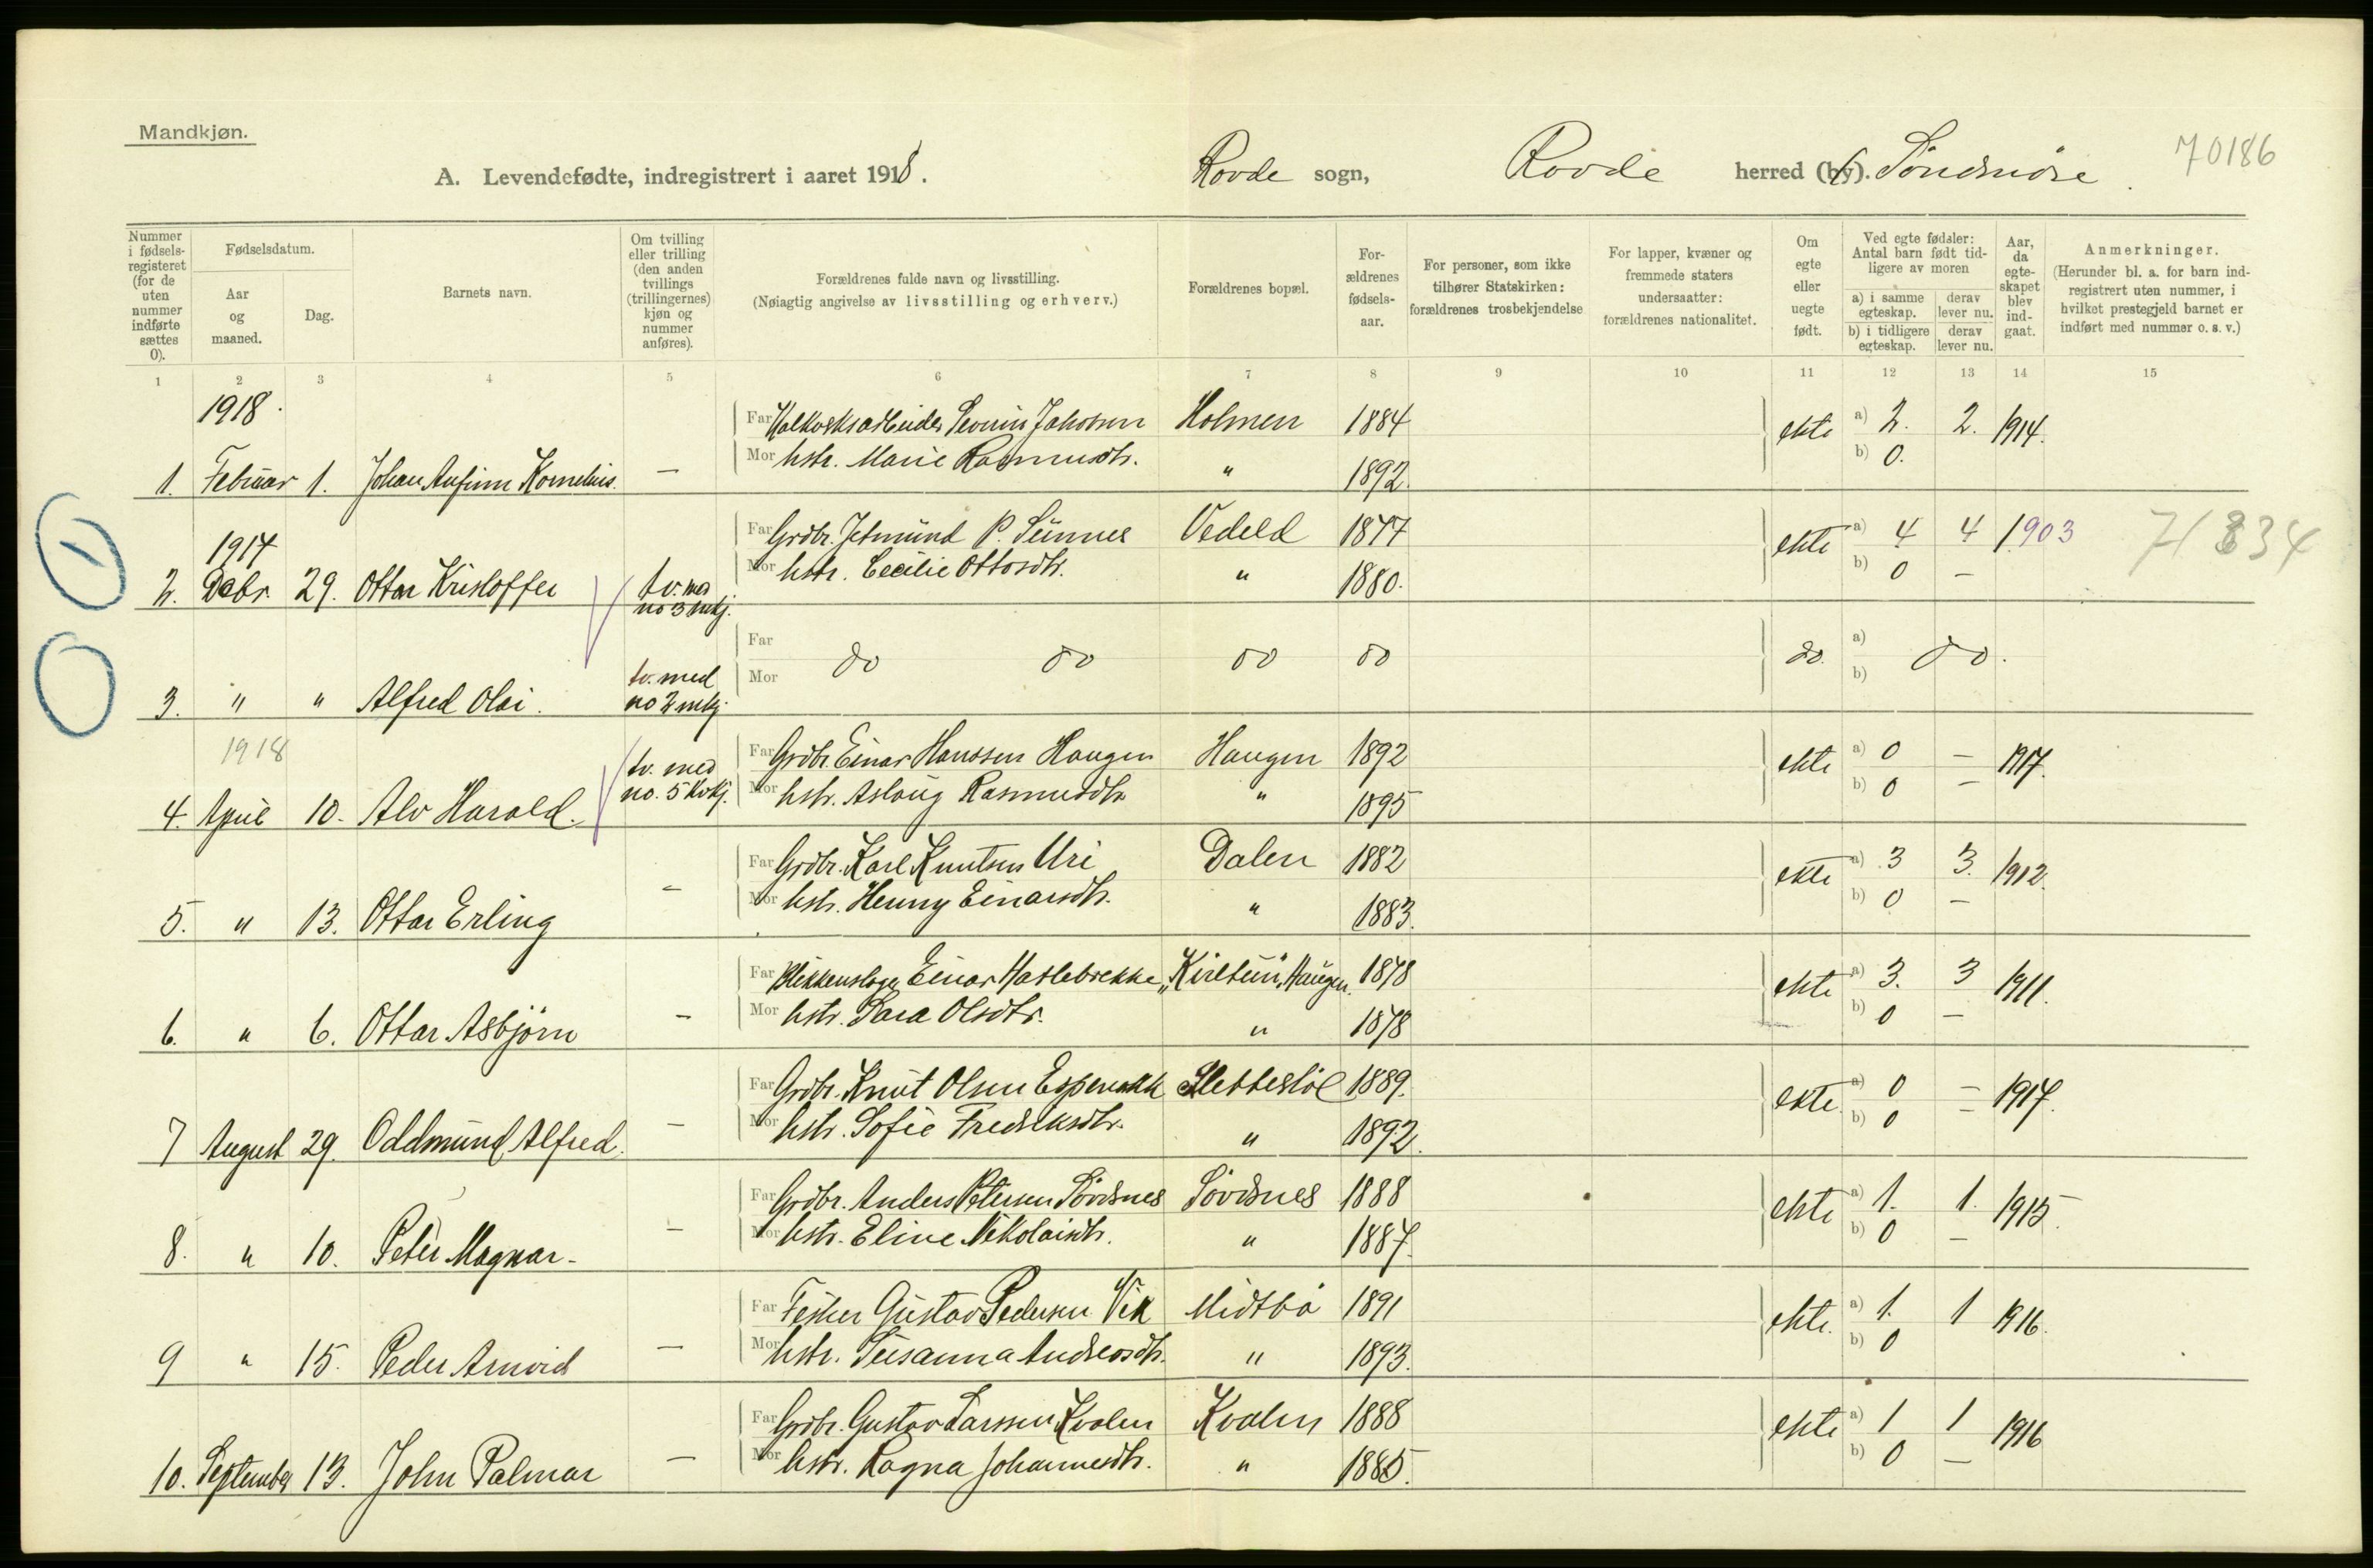 Mandkjøn.
70186
A. Levendefødte, indregistrert i aaret 1918. Rovde sogn, Rovde herred (by). Söndmöre.
Nummer i fødselsregisteret (for de uten nummer indførte sættes 0).
Fødselsdatum.
Aar og maaned.
Dag.
Barnets navn.
Om tvilling eller trilling (den anden tvillings (trillingernes) kjøn og nummer anføres).
Forældrenes fulde navn og livsstilling.
(Nøiagtig angivelse av livsstilling og erhverv.)
Forældrenes bopæl.
Forældrenes fødselsaar.
For personer, som ikke tilhører Statskirken: forældrenes trosbekjendelse
For lapper, kvæner og fremmede staters undersaatter: forældrenes nationalitet.
Om egte eller uegte født.
Ved egte fødsler: Antal barn født tidligere av moren
a) i samme egteskap.
derav lever nu.
b) i tidligere egteskap.
derav lever nu.
Aar, da egteskapet blev indgaat.
Anmerkninger.
(Herunder bl. a. for barn indregistrert uten nummer, i hvilket prestegjeld barnet er indført med nummer o. s. v.)
1 2 3 4 5 6 7 8 9 10 11 12 13 14 15
1918.
Far Severin Holmen 1884 ekte a) 2. 2. 1914.
Mor hstr. Marie Rasmusdtr. " 1892. b) 0.
1. Februar 1. Johan Anfinn Kornelius. —
1917
Far Grdbr. Jetmund P. Sunnes Vedeld 1877 ekte a) 4 4 1903 71834
Mor hstr. Cecilie Ottosdtr. " 1880. b) 0 —
2. Debr. 29. Ottar Kristoffer tv. med no 3 mkj.
Far do do do do do. a) do.
Mor b)
3. " " Alfred Olai. tv. med no 2 mkj.
1918
Far Grdbr. Einar Hanssen Haugen Haugen 1892 ekte a) 0 — 1917.
Mor hstr. Aslaug Rasmusdtr. " 1895 b) 0 —
4. April 10. Alv Harald. tv. med no. 5 kvkj.
Far Grdbr. Karl Knutsen Uri Dalen 1882 ekte a) 3 3. 1912.
Mor hstr. Henny Einarsdtr. " 1883. b) 0 —
5. " 13. Ottar Erling —
Far Blikkenslager Einar Haslebrekke "Kirketun", Haugen. 1878 ekte a) 3. 3 1911.
Mor hstr. Sara Olsdtr. " 1878 b) 0 —
6. " 6. Ottar Asbjörn —
Far Grdbr. Knut Olsen Slettestöl 1889. ekte. a) 0 — 1917.
Mor hstr. Sofie Fredriksdtr. " 1892. b) 0 —
7 August 29. Oddmund Alfred. —
Far Grdbr. Anders Petersen Sövdsnes Sövdsnes 1888 ekte a) 1. 1. 1915.
Mor hstr. Eline Nikolaisdtr. " 1887. b) 0 —
8. " 10. Peter Magnar. —
Far Fisker Gustav Pedersen Vik Midtbö 1891 ekte. a) 1. 1 1916.
Mor hstr. Susanna Andreasdtr. " 1893. b) 0
9 " 15. Peder Arnvid —
Far Grdbr. Gustav Larssen Kvalen Kvalen 1888 ekte a) 1 1 1916
Mor hstr. Ragna Johannesdtr. " 1885. b) 0 —
10. September 13. John Palmar —